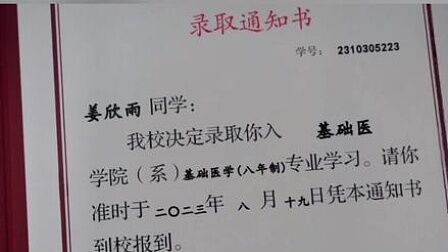 录取通知书
学号： 2310305223
姜欣雨 同学：
我校决定录取你入 基础医
学院（系）基础医学(八年制)专业学习。请你
准时于 二〇二三年 八 月 十九日凭本通知书
到校报到。